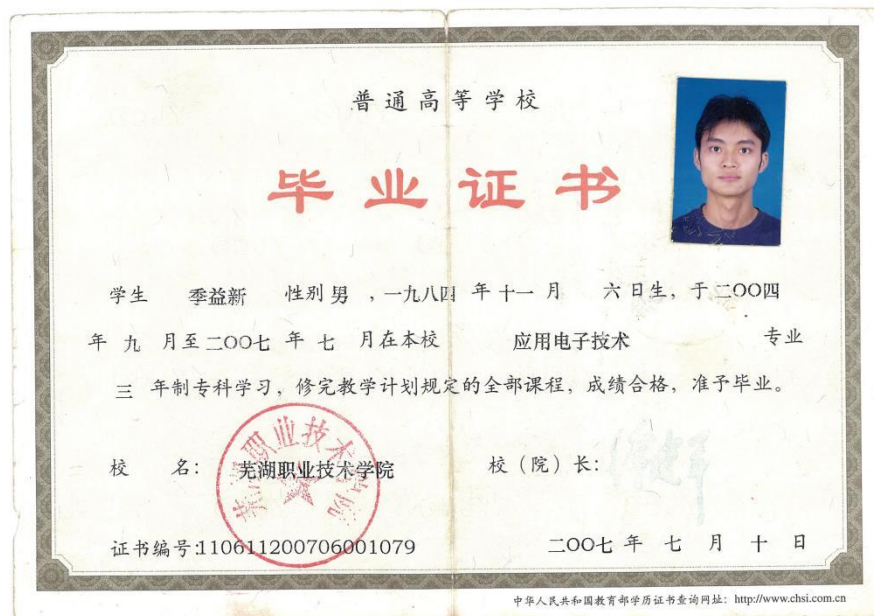 普通高等学校
毕业证书
学生 季益新 性别 男 ，一九八四 年 十一 月 六 日生，于二〇〇四
年 九 月至二〇〇七 年 七 月在本校 应用电子技术 专业
三 年制专科学习，修完教学计划规定的全部课程，成绩合格，准予毕业。
校 名： 芜湖职业技术学院 校（院）长：
芜湖职业技术学院
证书编号:110611200706001079 二〇〇七 年 七 月 十 日
中华人民共和国教育部学历证书查询网址：http://www.chsi.com.cn